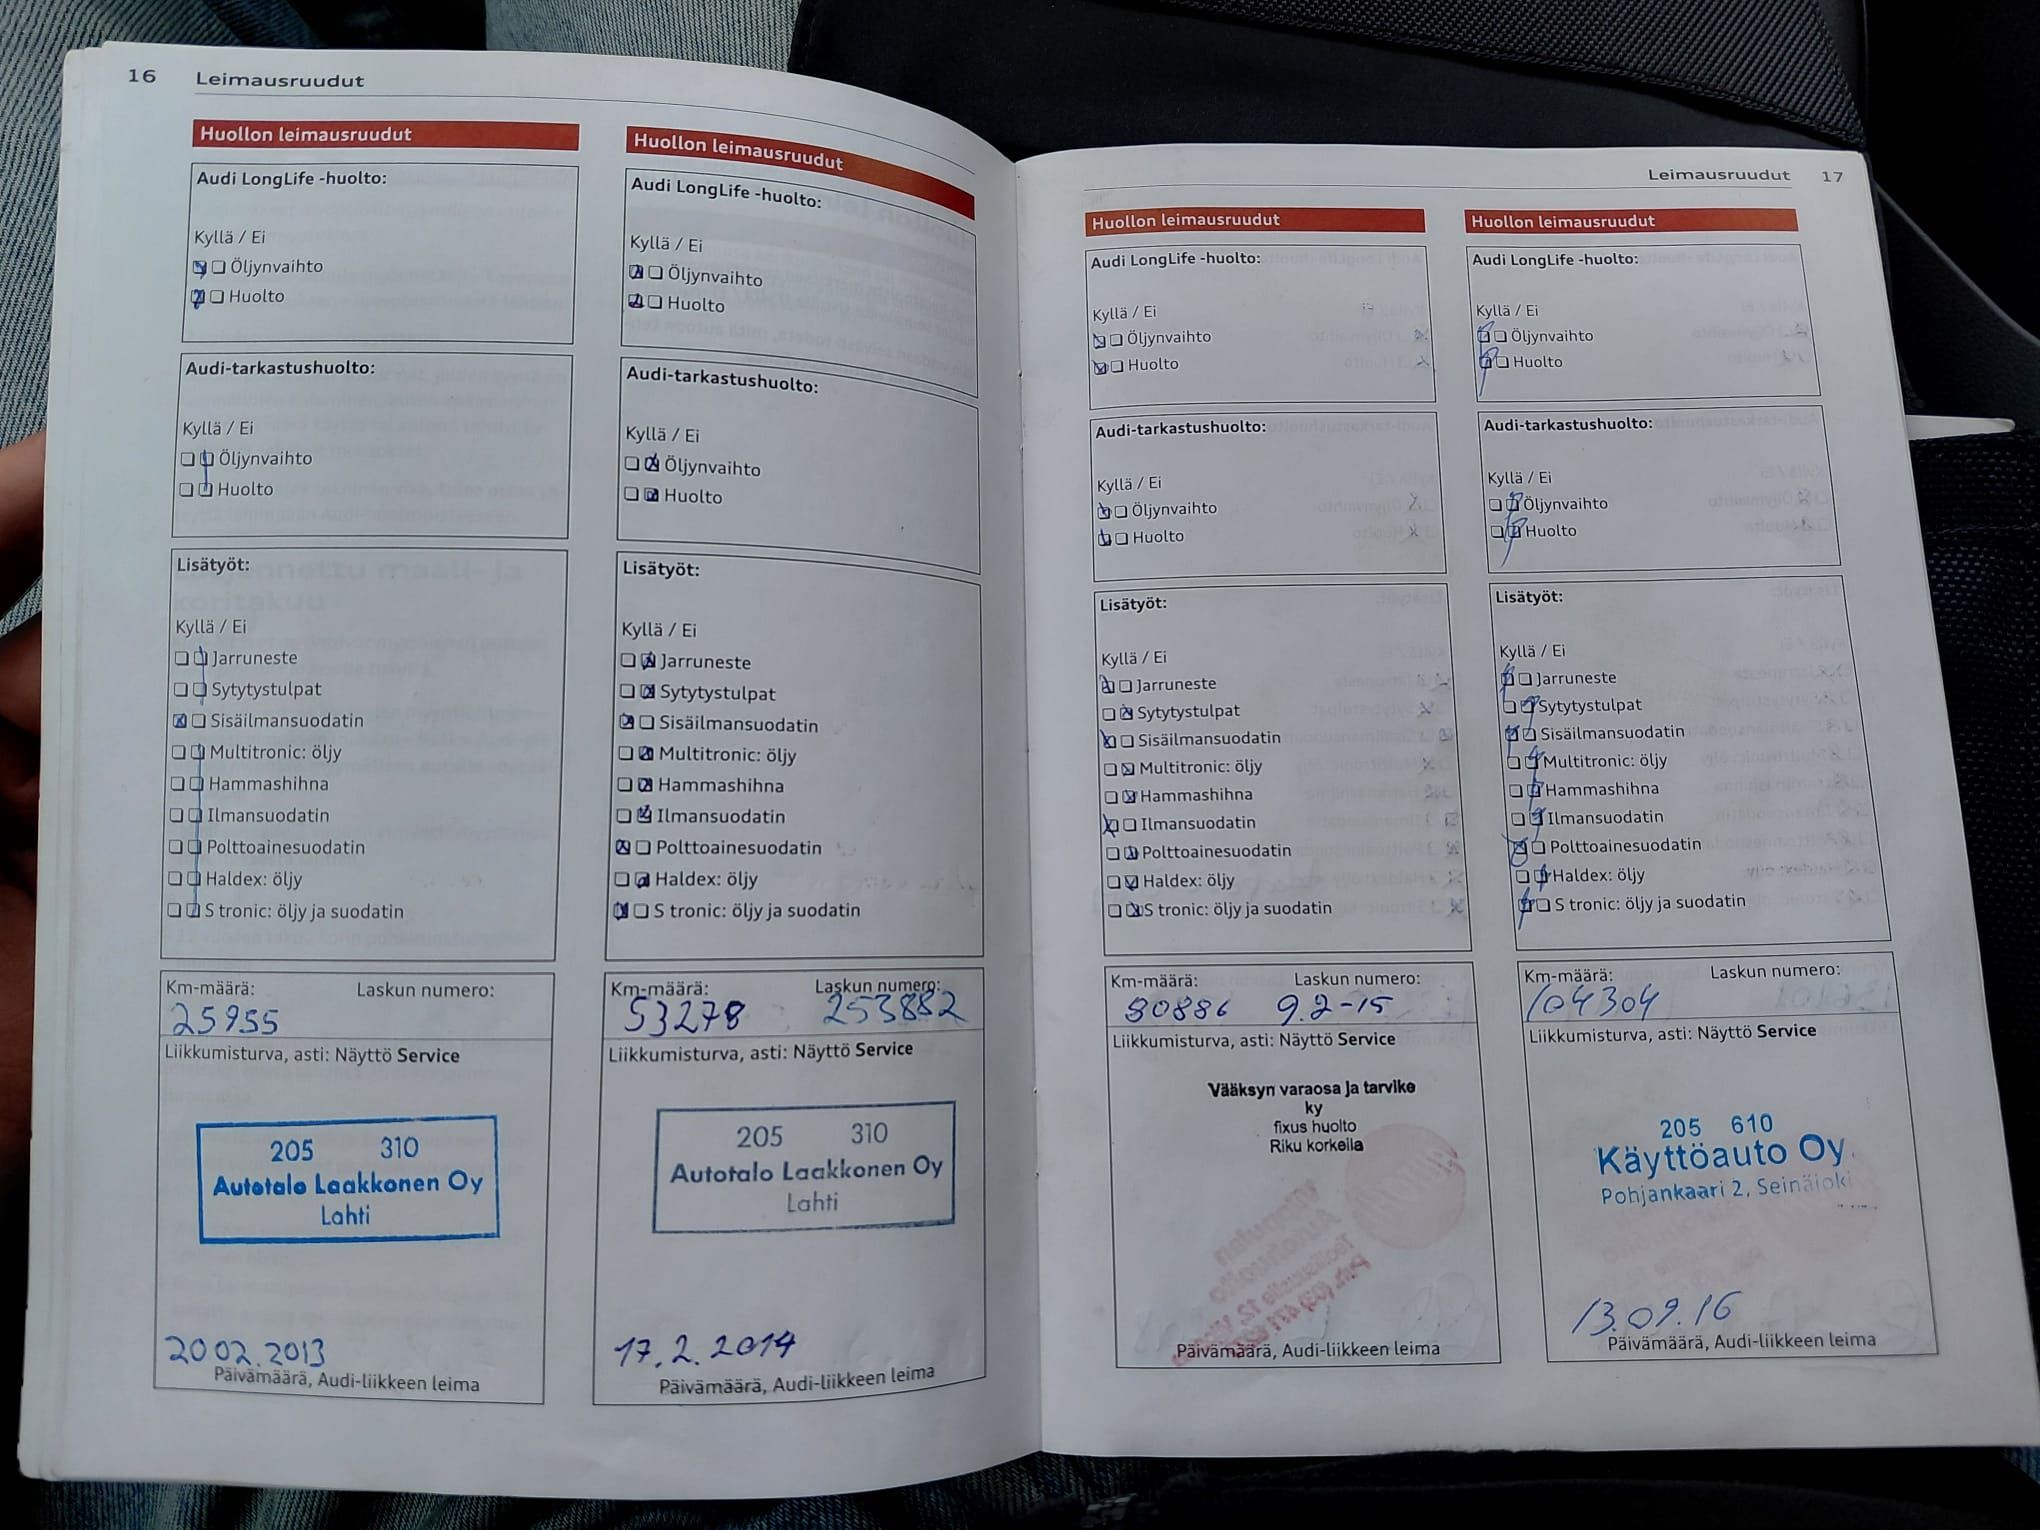 16 Leimausruudut
Huollon leimausruudut
Audi LongLife -huolto:
Kyllä / Ei
Öljynvaihto
Huolto
Audi-tarkastushuolto:
Kyllä / Ei
Öljynvaihto
Huolto
Lisätyöt:
Kyllä / Ei
Jarruneste
Sytytystulpat
Sisäilmansuodatin
Multitronic: öljy
Hammashihna
Ilmansuodatin
Polttoainesuodatin
Haldex: öljy
S tronic: öljy ja suodatin
Km-määrä: Laskun numero:
25955
Liikkumisturva, asti: Näyttö Service
205 310
Autotalo Laakkonen Oy
Lahti
20.02.2013
Päivämäärä, Audi-liikkeen leima
Huollon leimausruudut
Audi LongLife -huolto:
Kyllä / Ei
Öljynvaihto
Huolto
Audi-tarkastushuolto:
Kyllä / Ei
Öljynvaihto
Huolto
Lisätyöt:
Kyllä / Ei
Jarruneste
Sytytystulpat
Sisäilmansuodatin
Multitronic: öljy
Hammashihna
Ilmansuodatin
Polttoainesuodatin
Haldex: öljy
S tronic: öljy ja suodatin
Km-määrä: Laskun numero:
53278 253882
Liikkumisturva, asti: Näyttö Service
205 310
Autotalo Laakkonen Oy
Lahti
17.2.2014
Päivämäärä, Audi-liikkeen leima
Leimausruudut 17
Huollon leimausruudut
Audi LongLife -huolto:
Kyllä / Ei
Öljynvaihto
Huolto
Audi-tarkastushuolto:
Kyllä / Ei
Öljynvaihto
Huolto
Lisätyöt:
Kyllä / Ei
Jarruneste
Sytytystulpat
Sisäilmansuodatin
Multitronic: öljy
Hammashihna
Ilmansuodatin
Polttoainesuodatin
Haldex: öljy
S tronic: öljy ja suodatin
Km-määrä: Laskun numero:
80886 9.2-15
Liikkumisturva, asti: Näyttö Service
Vääksyn varaosa ja tarvike
ky
fixus huolto
Riku korkeila
Päivämäärä, Audi-liikkeen leima
Huollon leimausruudut
Audi LongLife -huolto:
Kyllä / Ei
Öljynvaihto
Huolto
Audi-tarkastushuolto:
Kyllä / Ei
Öljynvaihto
Huolto
Lisätyöt:
Kyllä / Ei
Jarruneste
Sytytystulpat
Sisäilmansuodatin
Multitronic: öljy
Hammashihna
Ilmansuodatin
Polttoainesuodatin
Haldex: öljy
S tronic: öljy ja suodatin
Km-määrä: Laskun numero:
104304
Liikkumisturva, asti: Näyttö Service
205 610
Käyttöauto Oy
Pohjankaari 2, Seinäjoki
13.09.16
Päivämäärä, Audi-liikkeen leima